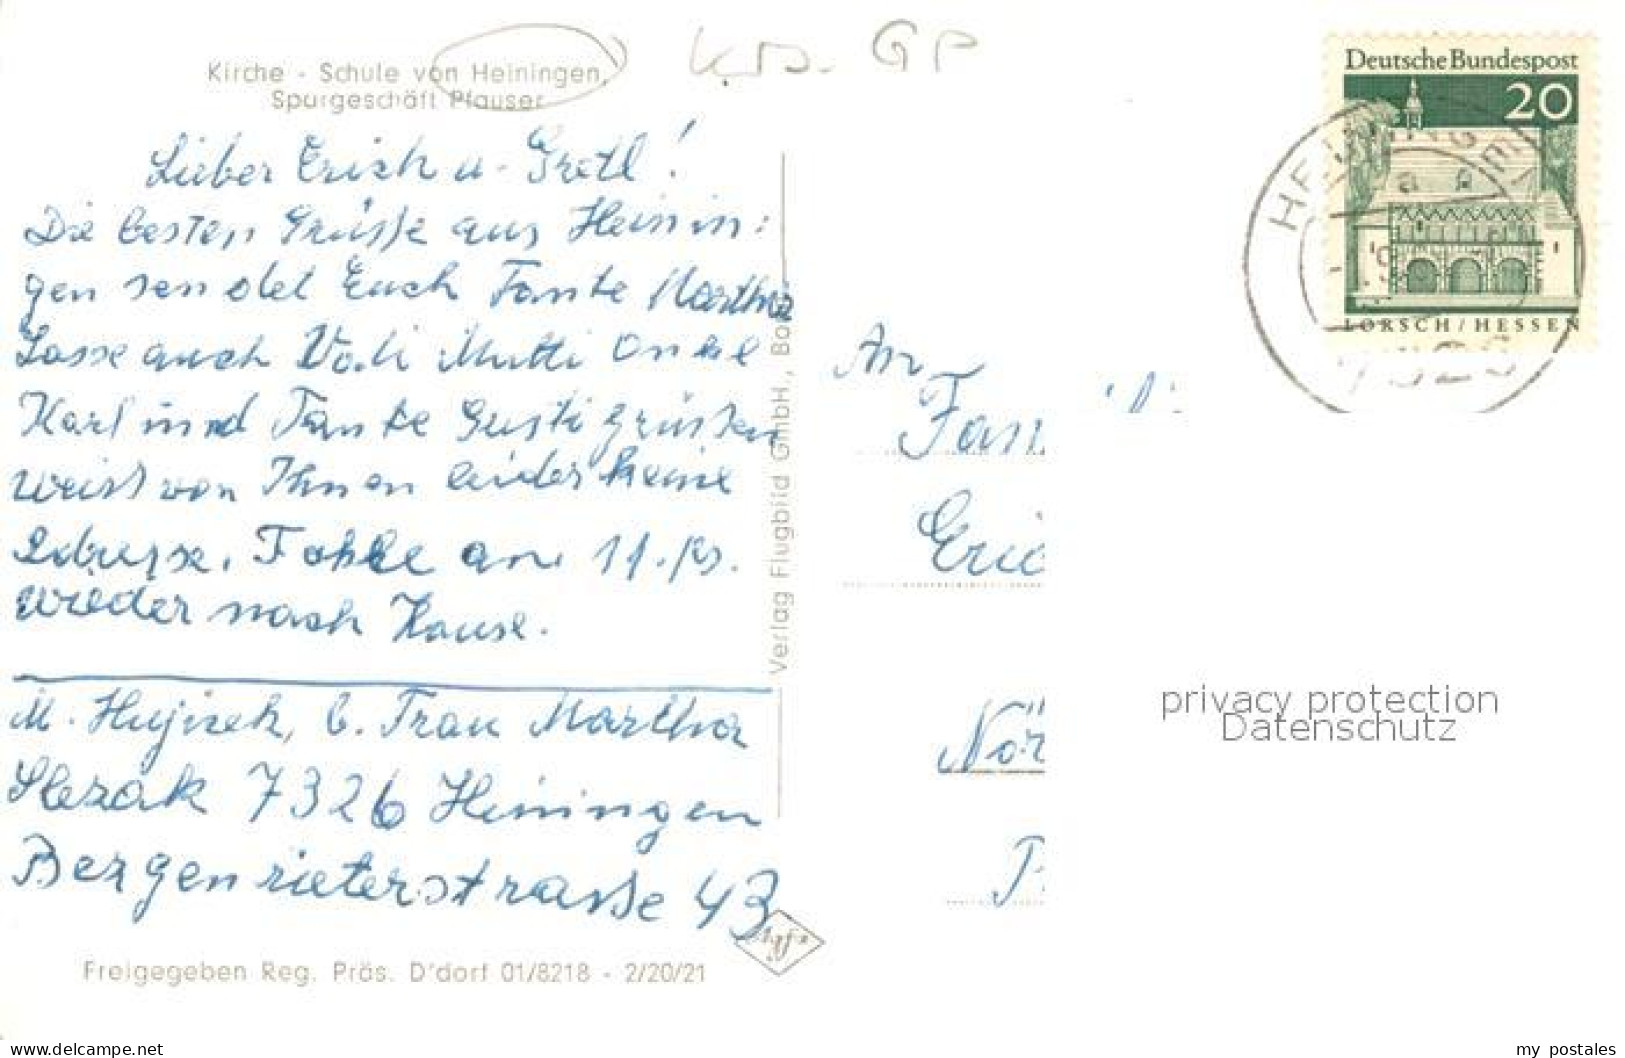 Kirche - Schule von Heiningen,
Spargeschäft Pfauser
Krs. GP
Deutsche Bundespost
20
LORSCH/HESSEN
HEININGEN
Lieber Erich u. Gretl!
Die besten Grüsse aus Heinin:
gen sendet Euch Tante Martha
Lasse auch Vati Mutti Onkel
Karl und Tante Gusti grüssen
weiss von Ihnen leider keine
Adresse. Fahre am 11.
wieder nach Hause.
M. Hujizek, b. Frau Martha
Slezak 7326 Heiningen
Bezgenrieterstrasse 43
Freigegeben Reg. Präs. D'dorf 01/8218 - 2/20/21
Verlag Flugbild GmbH.,
An
Fam
Eric
Nör
privacy protection
Datenschutz
delcampe.net
my_postales